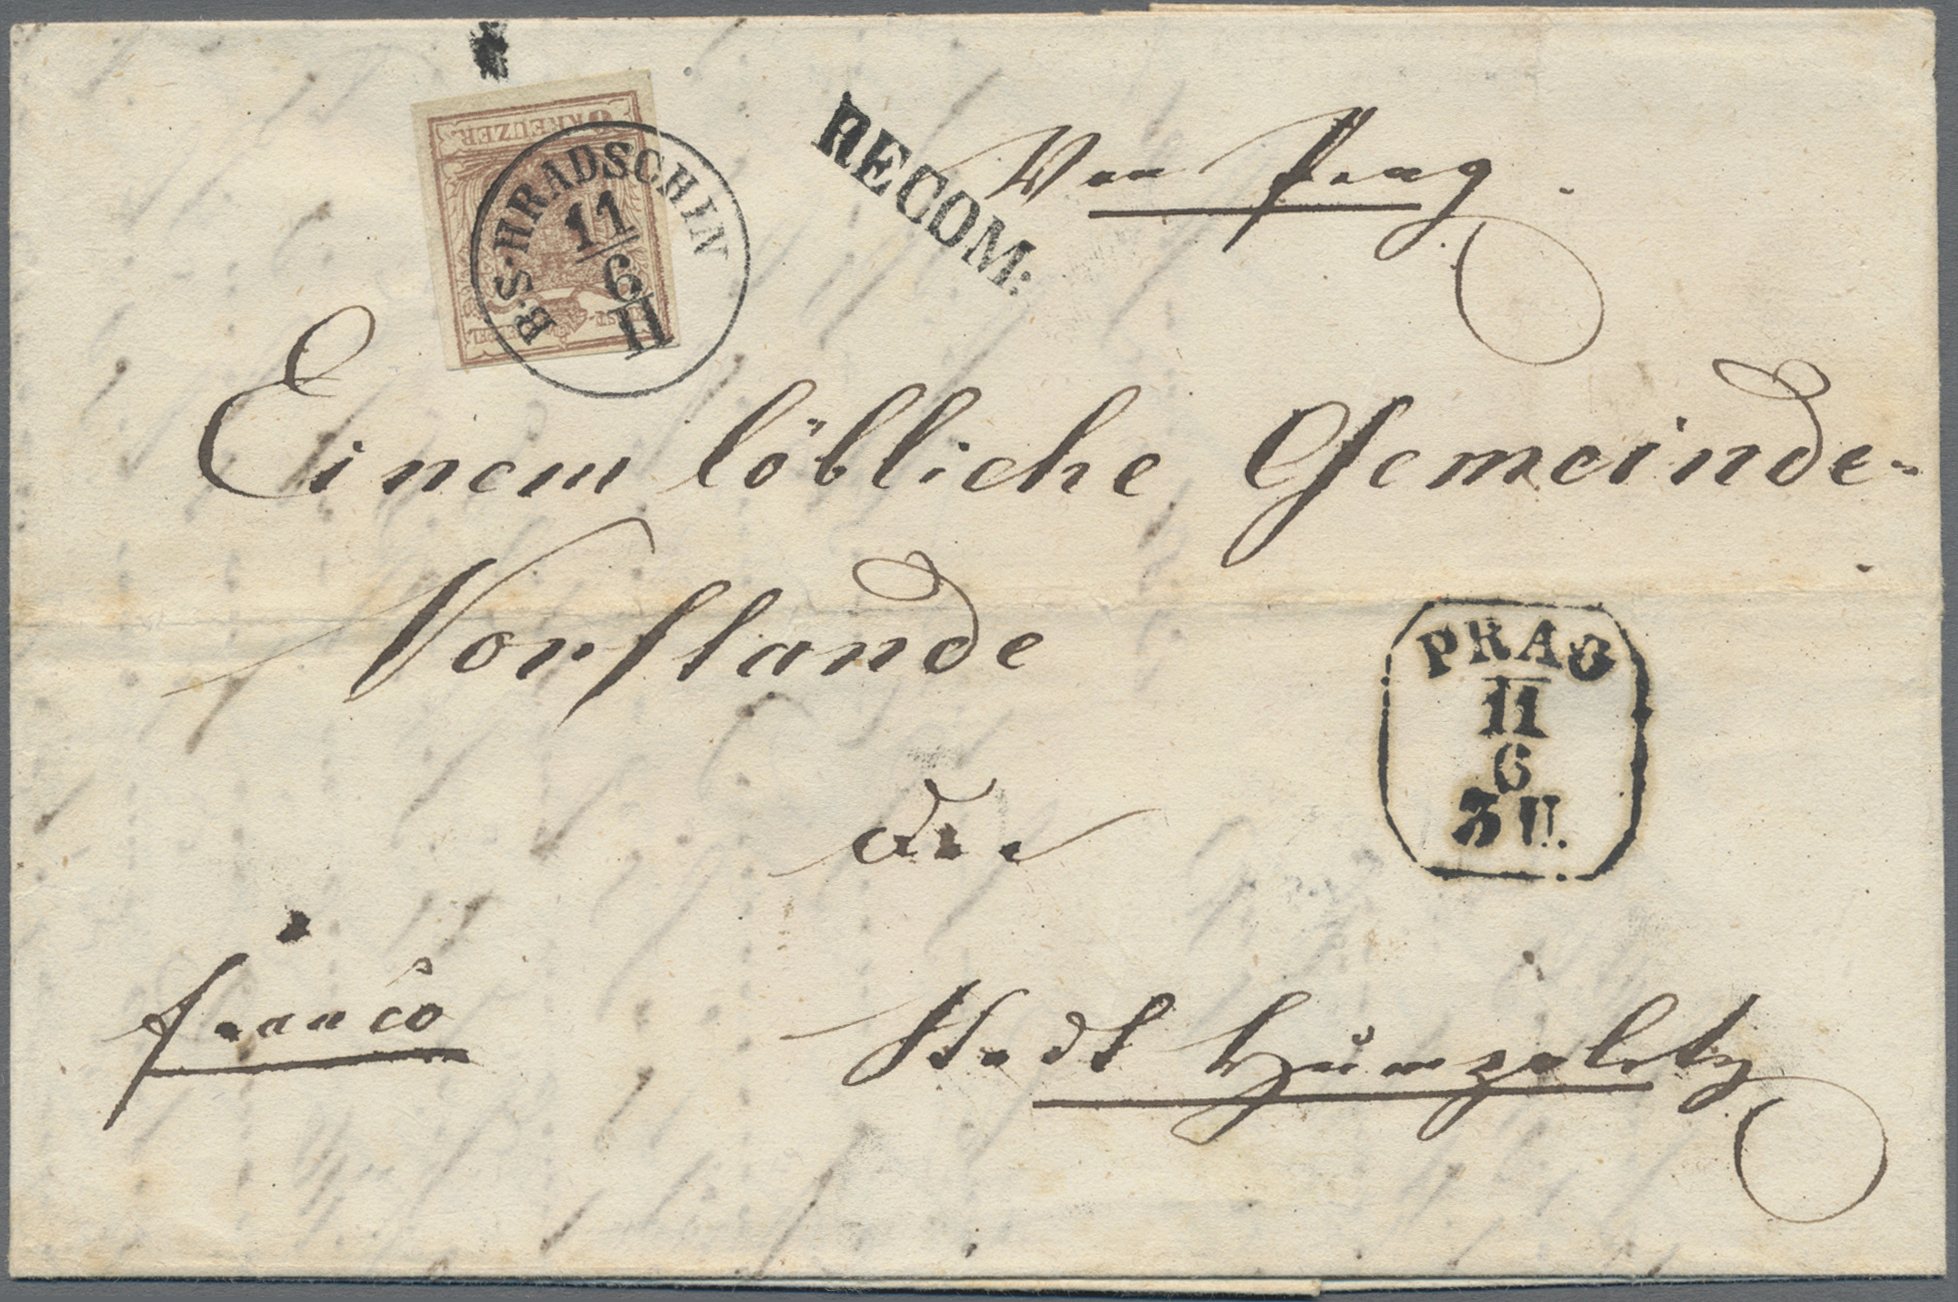 6 KREUZER
B.S.HRADSCHIN
11
6
II
RECOM:
Von Prag.
Einem löbliche Gemeinde-
Vorstande
PRAG
11
6
3 U.
der
franco
Stadt Humpoletz